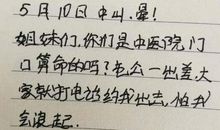 5月10日 中山.晕!
姐妹们,你们是中医院门
口算命的吗?老公一出差大
家就打电话约我出去,怕我
会浪起.